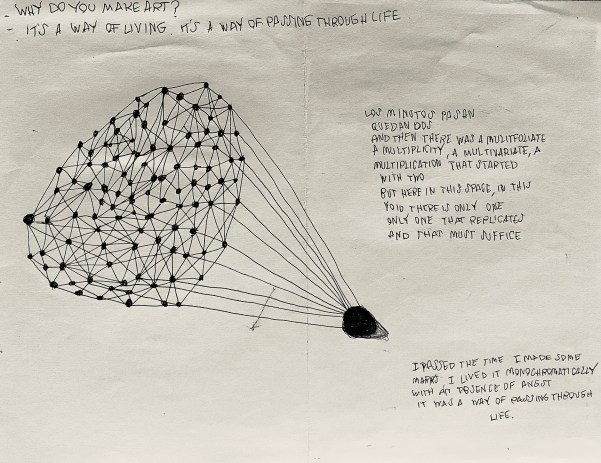 - WHY DO YOU MAKE ART?
- IT'S A WAY OF LIVING. IT'S A WAY OF PASSING THROUGH LIFE
LOS MINUTOS PASAN
QUEDAN DOS
AND THEN THERE WAS A MULITFOLIATE
A MULTIPLICITY, A MULTIVARIATE, A
MULTIPLICATION THAT STARTED
WITH TWO
BUT HERE IN THIS SPACE, IN THIS
VOID THERE IS ONLY ONE
ONLY ONE THAT REPLICATES
AND THAT MUST SUFFICE
I PASSED THE TIME I MADE SOME
MARKS I LIVED IT MONOCHROMATICALLY
WITH AN ABSENCE OF ANGST
IT WAS A WAY OF PASSING THROUGH
LIFE.